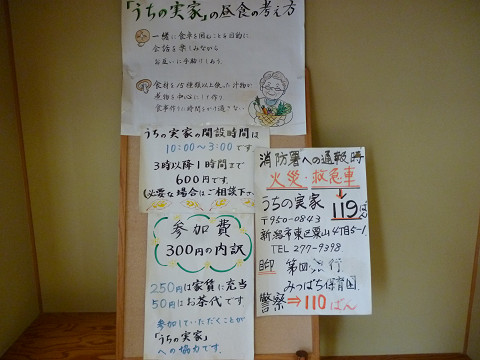 「うちの実家」の昼食の考え方
一緒に食卓を囲むことを目的に
会話を楽しみながら
お互いに手助けしあう。
食材を15種類以上使った汁物か
煮物を中心にして作り
食事作りに時間をかけ過ぎない
うちの実家の開設時間は
10:00〜3:00です。
3時以降1時間まで
600円です。
(必要な場合はご相談下さい)
参加費
300円の内訳
250円は家賃に充当
50円はお茶代です
参加していただくことが
「うちの実家」
への協力です。
消防署への通報時
火災・救急車
うちの実家 119ばん
〒950-0843
新潟市東区粟山4丁目5-1
TEL 277-9398
目印 第四銀行
みつばち保育園
警察⇒110ばん